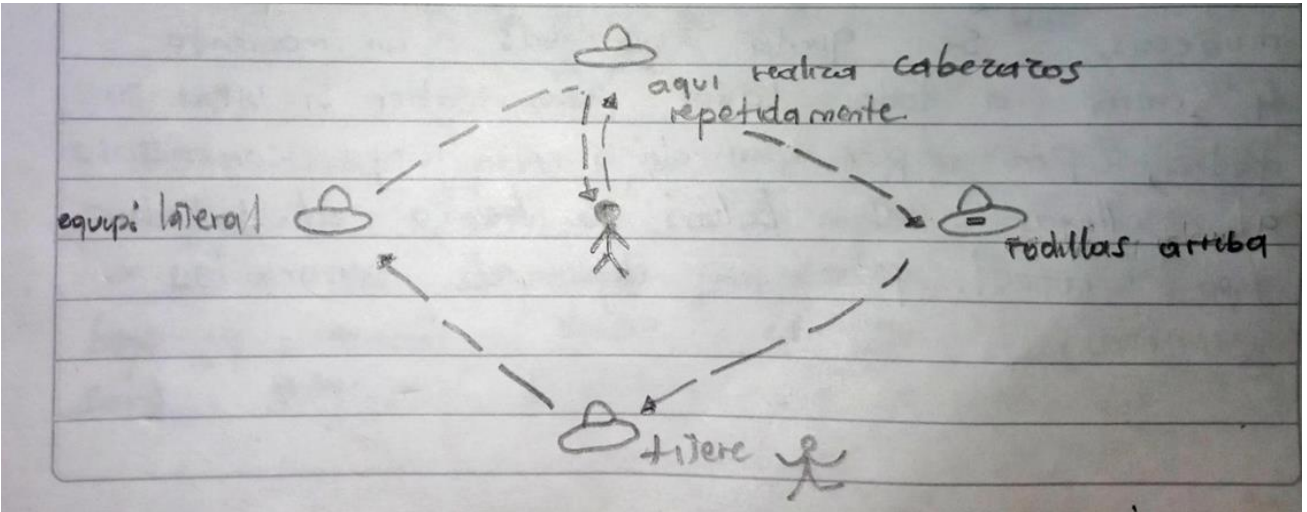 aqui realiza cabezazos
repetidamente
equipi lateral
rodillas arriba
tijere